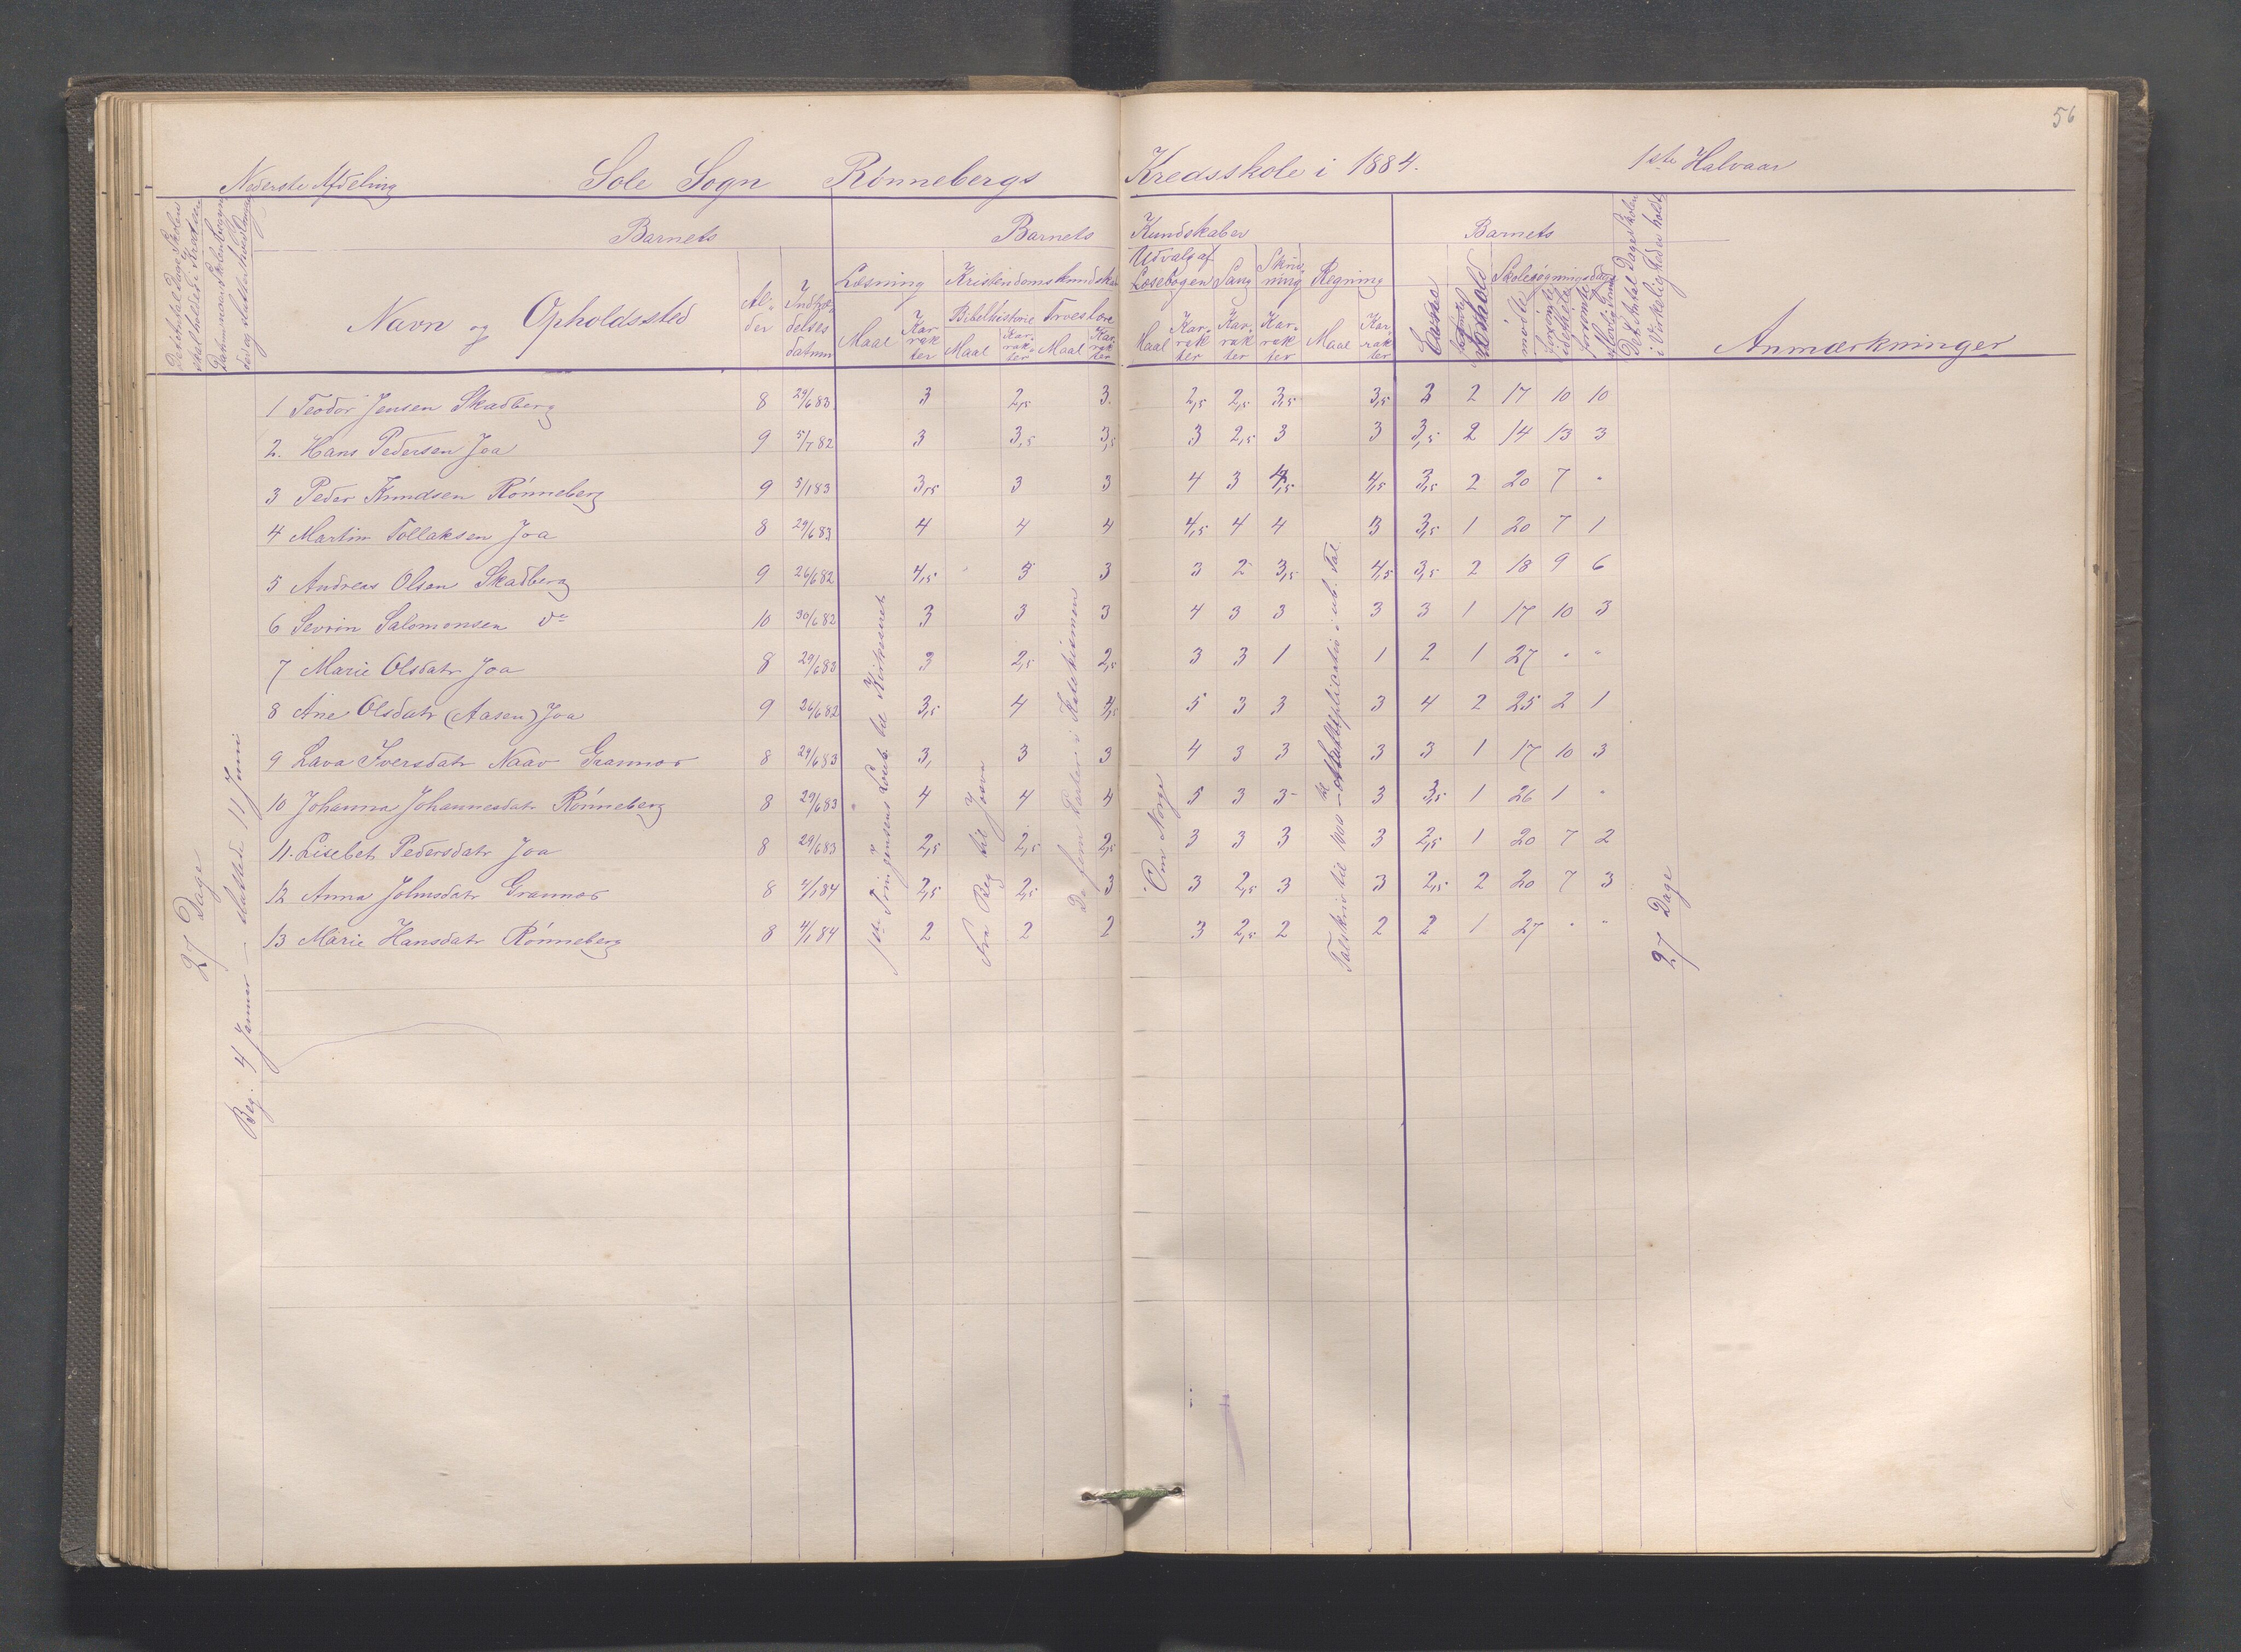 56
Nederste Afdeling Sole Sogn Rønnebergs Kredsskole i 1884. 1ste Halvaar
Det Antal Dage Skolen skal holdes i Kredsen
Datum naar Skolen begyndes og sluttes
Barnets Barnets Kundskaber Barnets
Navn og Opholdssted
Alder
Indtrædelses datum
Læsning Kristendomskundskab Udvalg af Læsebogen Sang Skrivning Regning
Bibelhistorie Troeslære
Maal Karrakter Maal Karrakter Maal Karrakter Maal Karrakter Karrakter Karrakter Maal Karrakter
Evne
Forhold
Skolesøgningsdage
mødte
forsømte
forsømte
Det Antal Dage Skolen i Virkeligheden holdt
Anmærkninger
1 Teodor Jensen Skadberg 8 29/6 83 3 2,5 3 2,5 2,5 3,5 3,5 3 2 17 10 10
2. Hans Pedersen Joa 9 5/7 82 3 3,5 3,5 3 2,5 3 3 3,5 2 14 13 3
3 Peder Knudsen Rønneberg 9 5/1 83 3,5 3 3 4 3 4,5 4,5 3,5 2 20 7 "
4 Martin Tollaksen Joa 8 29/6 83 4 4 4 4,5 4 4 3 3,5 1 20 7 1
5 Andreas Olsen Skadberg 9 26/6 82 4,5 3 3 3 2 3,5 4,5 3,5 2 18 9 6
6 Sevrin Salomonsen do 10 30/6 82 3 3 3 4 3 3 3 3 1 17 10 3
7 Marie Olsdatr Joa 8 29/6 83 3 2,5 2,5 3 3 1 1 2 1 27 " "
8 Ane Olsdatr (Aasen) Joa 9 26/6 82 3,5 4 4,5 5 3 3 3 4 2 25 2 1
9 Lava Iversdatr Naav Grannes 8 29/6 83 3, 3 3 4 3 3 3 3 1 17 10 3
10 Johanna Johannesdatr Rønneberg 8 29/6 83 4 4 4 5 3 3 3 3,5 1 26 1 "
11. Lisebet Pedersdatr Joa 8 29/6 83 2,5 2,5 2,5 3 3 3 3 2,5 1 20 7 2
12 Anna Johnsdatr Grannes 8 4/1 84 2,5 2,5 3 3 2,5 3 3 2,5 2 20 7 3
13 Marie Hansdatr Rønneberg 8 4/1 84 2 2 2 3 2,5 2 2 2 1 27 " "
27 Dage
Beg. 4 Januar – sluttede 11 Juni
Fra Beg til Josva
De fem Parter i Katekismen
Om Norge
Talskriv til 1000 Multiplication i ub. Tal
27 Dage